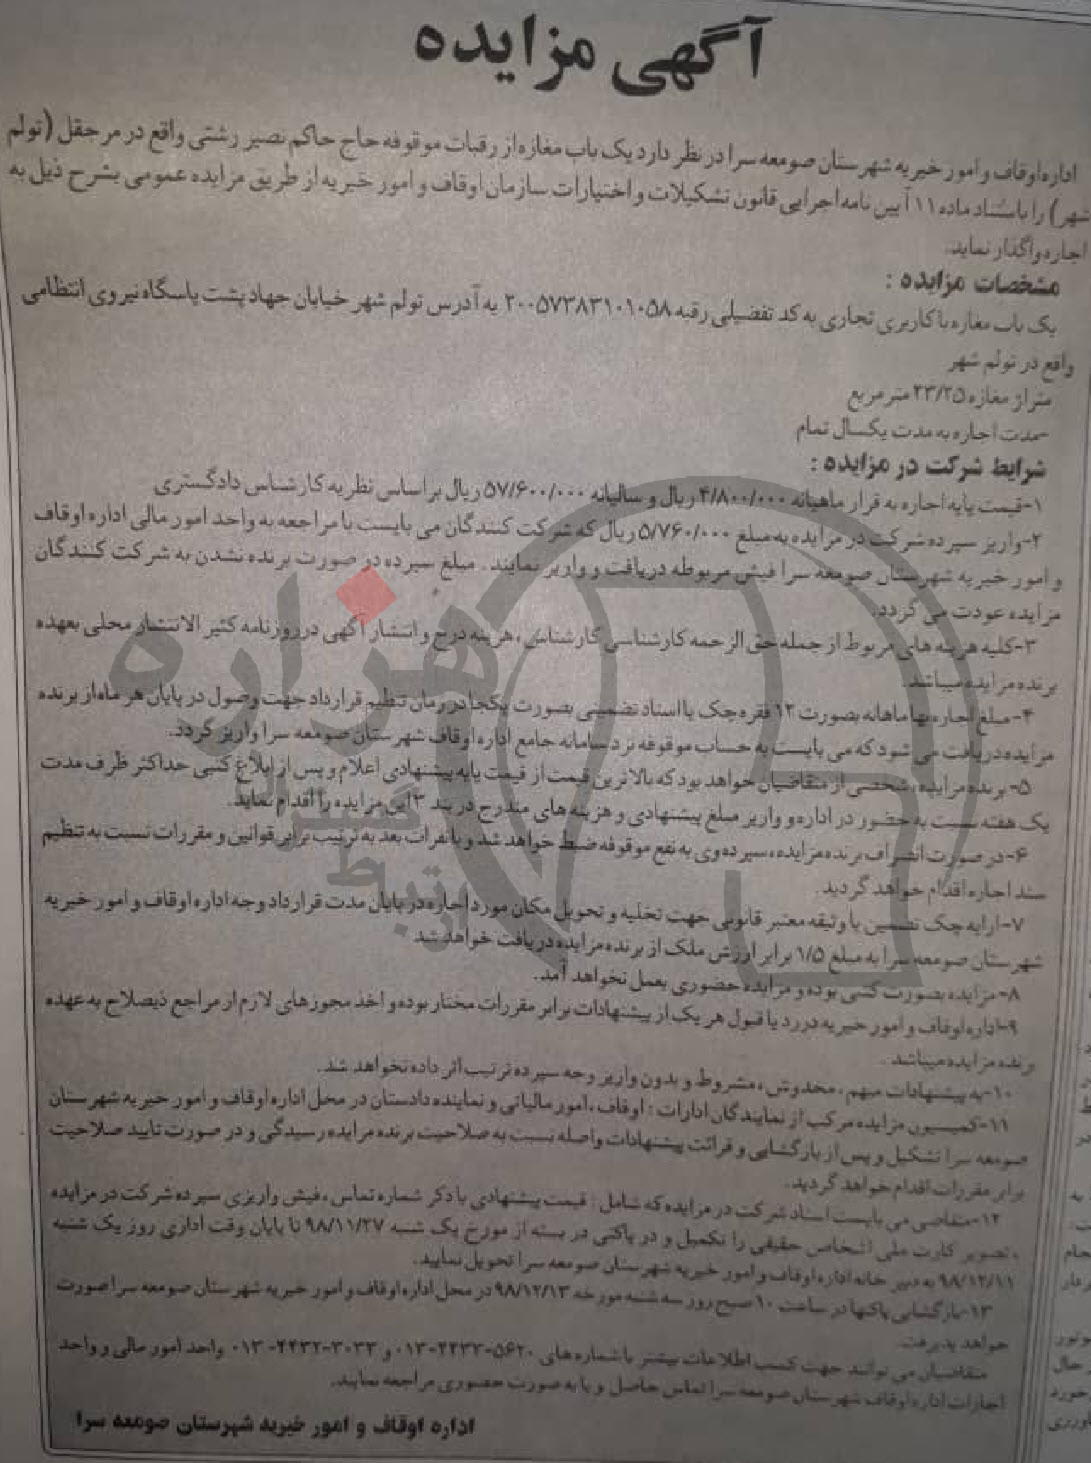 آگهی مزایده
اداره اوقاف و امور خیریه شهرستان صومعه سرا در نظر دارد یک باب مغازه از رقبات موقوفه حاج حاکم نصیر رشتی واقع در مرجقل (تولم
شهر) را باستناد ماده ۱۱ آیین نامه اجرایی قانون تشکیلات و اختیارات سازمان اوقاف و امور خیریه از طریق مزایده عمومی بشرح ذیل به
اجاره واگذار نماید.
مشخصات مزایده :
یک باب مغازه با کاربری تجاری به کد تفضیلی رقبه ۲۰۰۵۷۳۸۳۱۰۱۰۵۸ به آدرس تولم شهر خیابان جهاد پشت پاسگاه نیروی انتظامی
واقع در تولم شهر
متراژ مغازه ۲۳/۲۵ متر مربع
-مدت اجاره به مدت یکسال تمام
شرایط شرکت در مزایده :
۱-قیمت پایه اجاره به قرار ماهیانه ۴/۸۰۰/۰۰۰ ریال و سالیانه ۵۷/۶۰۰/۰۰۰ ریال بر اساس نظریه کارشناس دادگستری
۲-واریز سپرده شرکت در مزایده به مبلغ ۵/۷۶۰/۰۰۰ ریال که شرکت کنندگان می بایست با مراجعه به واحد امور مالی اداره اوقاف
و امور خیریه شهرستان صومعه سرا فیش مربوطه دریافت و واریز نمایند . مبلغ سپرده در صورت برنده نشدن به شرکت کنندگان
مزایده عودت می گردد.
۳-کلیه هزینه های مربوط از جمله حق الزحمه کارشناسی کارشناس ، هزینه درج و انتشار آگهی در روزنامه کثیر الانتشار محلی بعهده
برنده مزایده میباشد.
۴-مبلغ اجاره بها ماهانه بصورت ۱۲ فقره چک یا اسناد تضمینی بصورت یکجا در زمان تنظیم قرارداد جهت وصول در پایان هر ماه از برنده
مزایده دریافت می شود که می بایست به حساب موقوفه نزد سامانه جامع اداره اوقاف شهرستان صومعه سرا واریز گردد.
۵- برنده مزایده ، شخصی از متقاضیان خواهد بود که بالاترین قیمت از قیمت پایه پیشنهادی اعلام و پس از ابلاغ کتبی حداکثر ظرف مدت
یک هفته نسبت به حضور در اداره و واریز مبلغ پیشنهادی و هزینه های مندرج در بند ۳ این مزایده را اقدام نماید.
۶-در صورت انصراف برنده مزایده ، سپرده وی به نفع موقوفه ضبط خواهد شد و با نفرات بعد به ترتیب برابر قوانین و مقررات نسبت به تنظیم
سند اجاره اقدام خواهد گردید .
۷-ارایه چک تضمین یا وثیقه معتبر قانونی جهت تخلیه و تحویل مکان مورد اجاره در پایان مدت قرارداد وجه اداره اوقاف و امور خیریه
شهرستان صومعه سرا به مبلغ ۱/۵ برابر ارزش ملک از برنده مزایده دریافت خواهد شد
۸-مزایده بصورت کتبی بوده و مزایده حضوری بعمل نخواهد آمد.
۹-اداره اوقاف و امور خیریه در رد یا قبول هر یک از پیشنهادات برابر مقررات مختار بوده و اخذ مجوزهای لازم از مراجع ذیصلاح به عهده
برنده مزایده میباشد .
۱۰-به پیشنهادات مبهم ، مخدوش ، مشروط و بدون واریز وجه سپرده ترتیب اثر داده نخواهد شد.
۱۱-کمیسیون مزایده مرکب از نمایندگان ادارات : اوقاف ، امور مالیاتی و نماینده دادستان در محل اداره اوقاف و امور خیریه شهرستان
صومعه سرا تشکیل و پس از بازگشایی و قرائت پیشنهادات واصله نسبت به صلاحیت برنده مزایده رسیدگی و در صورت تایید صلاحیت
برابر مقررات اقدام خواهد گردید.
۱۲-متقاضی می بایست اسناد شرکت در مزایده که شامل : قیمت پیشنهادی با ذکر شماره تماس ، فیش واریزی سپرده شرکت در مزایده
، تصویر کارت ملی اشخاص حقیقی را تکمیل و در پاکتی در بسته از مورخ یک شنبه ۹۸/۱۱/۲۷ تا پایان وقت اداری روز یک شنبه
۹۸/۱۲/۱۱ به دبیر خانه اداره اوقاف و امور خیریه شهرستان صومعه سرا تحویل نمایید.
۱۳-بازگشایی پاکتها در ساعت ۱۰ صبح روز سه شنبه مورخه ۹۸/۱۲/۱۳ در محل اداره اوقاف و امور خیریه شهرستان صومعه سرا صورت
خواهد پذیرفت.
متقاضیان می توانند جهت کسب اطلاعات بیشتر با شماره های ۵۶۲۰-۴۴۳۳-۰۱۳ و ۳۰۳۳-۴۴۳۲-۰۱۳ واحد امور مالی و واحد
اجارات اداره اوقاف شهرستان صومعه سرا تماس حاصل و یا به صورت حضوری مراجعه نمایند.
اداره اوقاف و امور خیریه شهرستان صومعه سرا
هزاره